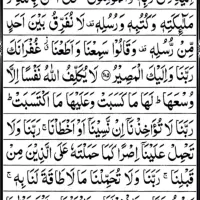 مَلٰٓئِكَتِهٖ وَكُتُبِهٖ وَرُسُلِهٖ ۟ لَا نُفَرِّقُ بَيْنَ اَحَدٍ
مِّنْ رُّسُلِهٖ ۟ وَقَالُوْا سَمِعْنَا وَاَطَعْنَا ٭۫ غُفْرَانَكَ
رَبَّنَا وَاِلَيْكَ الْمَصِيْرُ ﴿۲۸۵﴾ لَا يُكَلِّفُ اللّٰهُ نَفْسًا اِلَّا
وُسْعَهَا ؕ لَهَا مَا كَسَبَتْ وَعَلَيْهَا مَا اكْتَسَبَتْ ؕ
رَبَّنَا لَا تُؤَاخِذْنَاۤ اِنْ نَّسِيْنَاۤ اَوْ اَخْطَاْنَا ۚ رَبَّنَا وَلَا
تَحْمِلْ عَلَيْنَاۤ اِصْرًا كَمَا حَمَلْتَهٗ عَلَى الَّذِيْنَ مِنْ
قَبْلِنَا ۚ رَبَّنَا وَلَا تُحَمِّلْنَا مَا لَا طَاقَةَ لَنَا بِهٖ ۚ